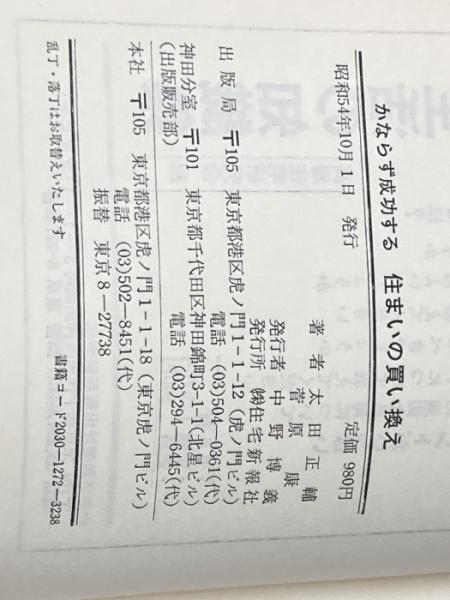 かならず成功する 住まいの買い換え
昭和54年10月1日 発行 定価 980円
著者 太田正輔
菅原康
発行者 中野博義
発行所 ㈱住宅新報社
出版局 〒105 東京都港区虎ノ門1-1-12(虎ノ門ビル)
電話 (03)504-0361(代)
神田分室 〒101 東京都千代田区神田錦町3-1-1(北星ビル)
(出版販売部) 電話 (03)294-6445(代)
本社 〒105 東京都港区虎ノ門1-1-18(東京虎ノ門ビル)
電話 (03)502-8451(代)
振替 東京8-27738
乱丁・落丁はお取替えいたします 書籍コード2030-1272-3238